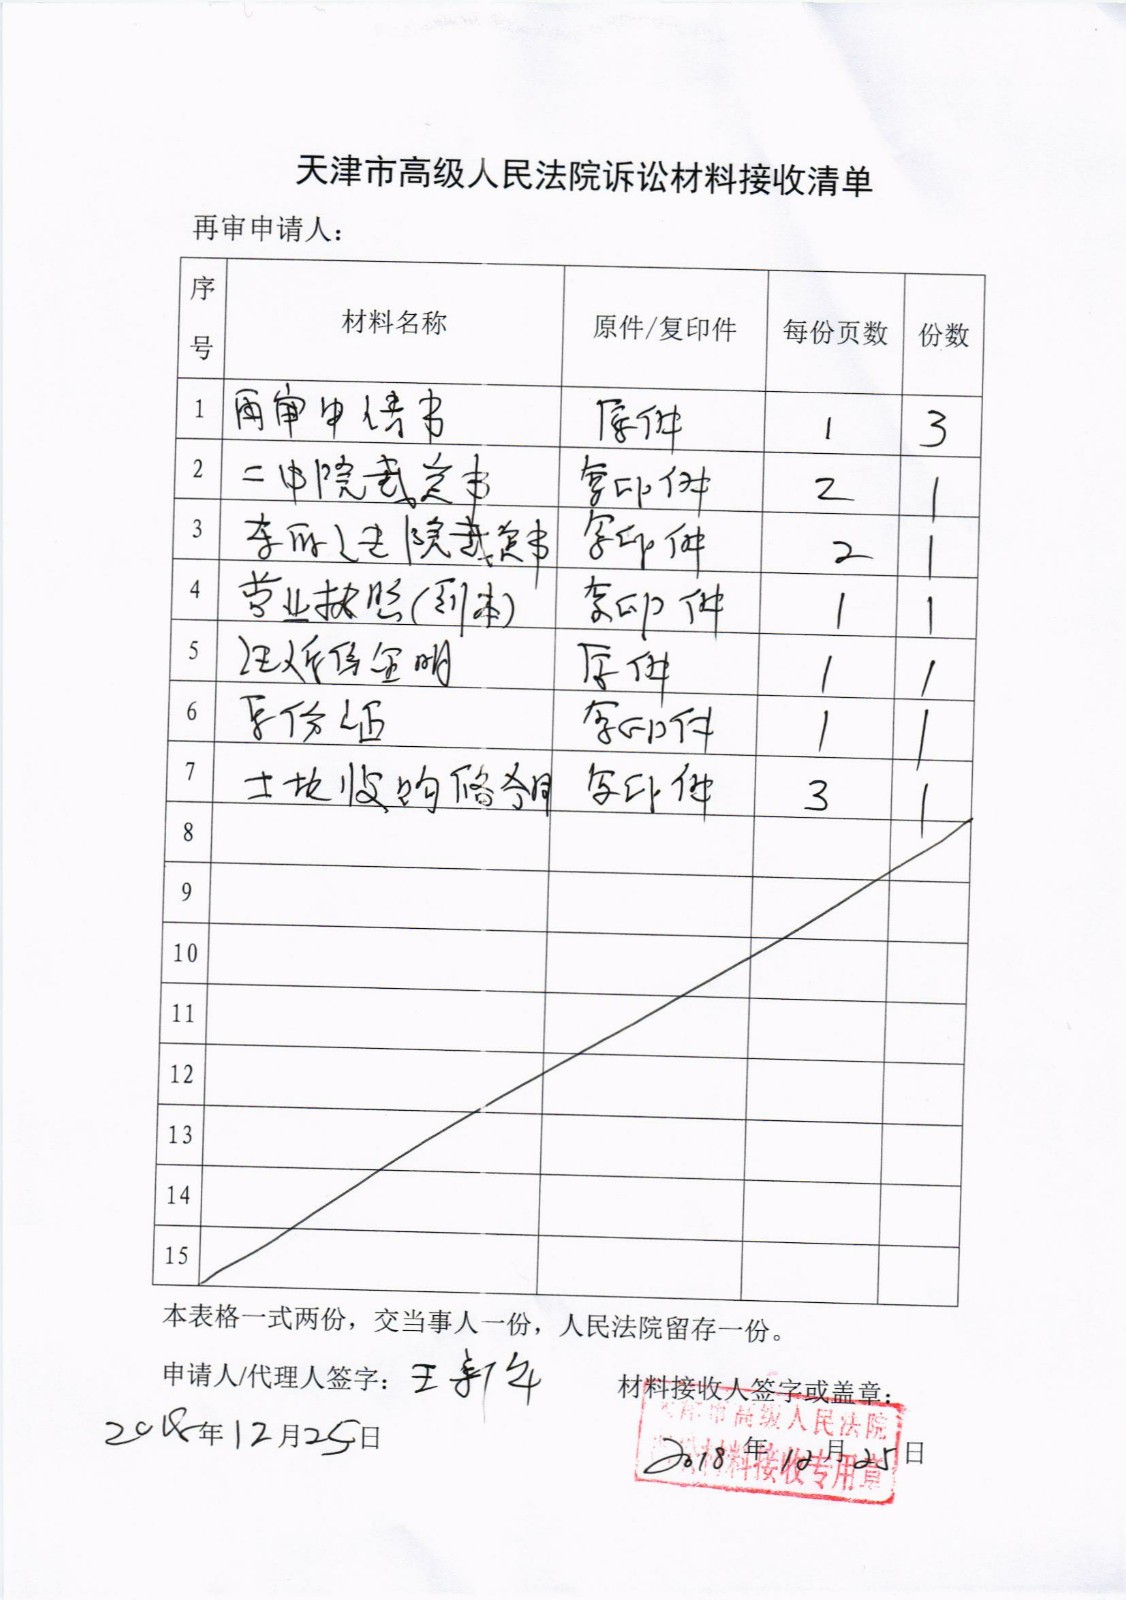 天津市高级人民法院诉讼材料接收清单
再审申请人：
序号 材料名称 原件/复印件 每份页数 份数
1 再审申请书 原件 1 3
2 二中院裁定书 复印件 2 1
3 李所法院裁定书 复印件 2 1
4 营业执照(副本) 复印件 1 1
5 法人身份证明 原件 1 1
6 身份证 复印件 1 1
7 土地收购 复印件 3 1
8
9
10
11
12
13
14
15
本表格一式两份，交当事人一份，人民法院留存一份。
申请人/代理人签字：王新年 材料接收人签字或盖章：
天津市高级人民法院
2018年12月25日 2018年12月25日
诉讼材料接收专用章